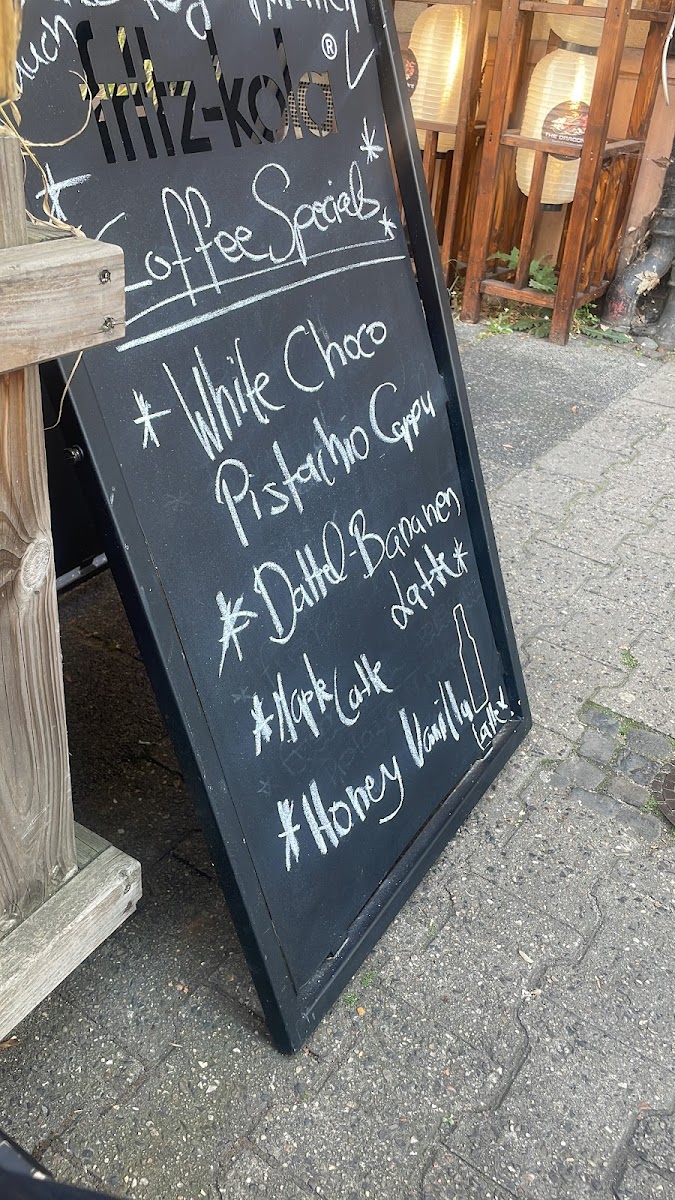 auch
fritz-kola®
*Coffee Specials*
*White Choco
Pistachio Cappu
*Dattel-Bananen
Latte*
*Maple Latte
*Honey Vanilla
Latte*
THE DRAGON